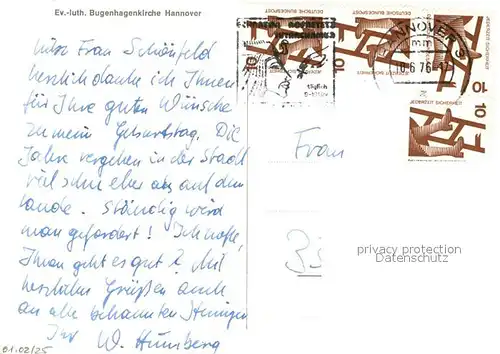 Ev.-luth. Bugenhagenkirche Hannover
Liebe Frau Schönfeld
herzlich danke ich Ihnen
für Ihre guten Wünsche
zu meinem Geburtstag. Die
Jahre vergehen in der Stadt
viel schneller als auf dem
Lande. Ständig wird
man gefordert! Ich hoffe,
Ihnen geht es gut? Mit
herzlichen Grüßen auch
an alle bekannten
Ihr W.
01.02/25
DEUTSCHE BUNDESPOST
JEDERZEIT SICHERHEIT
10
10
10
10
HANNOVER
täglich
Frau
privacy protection
Datenschutz